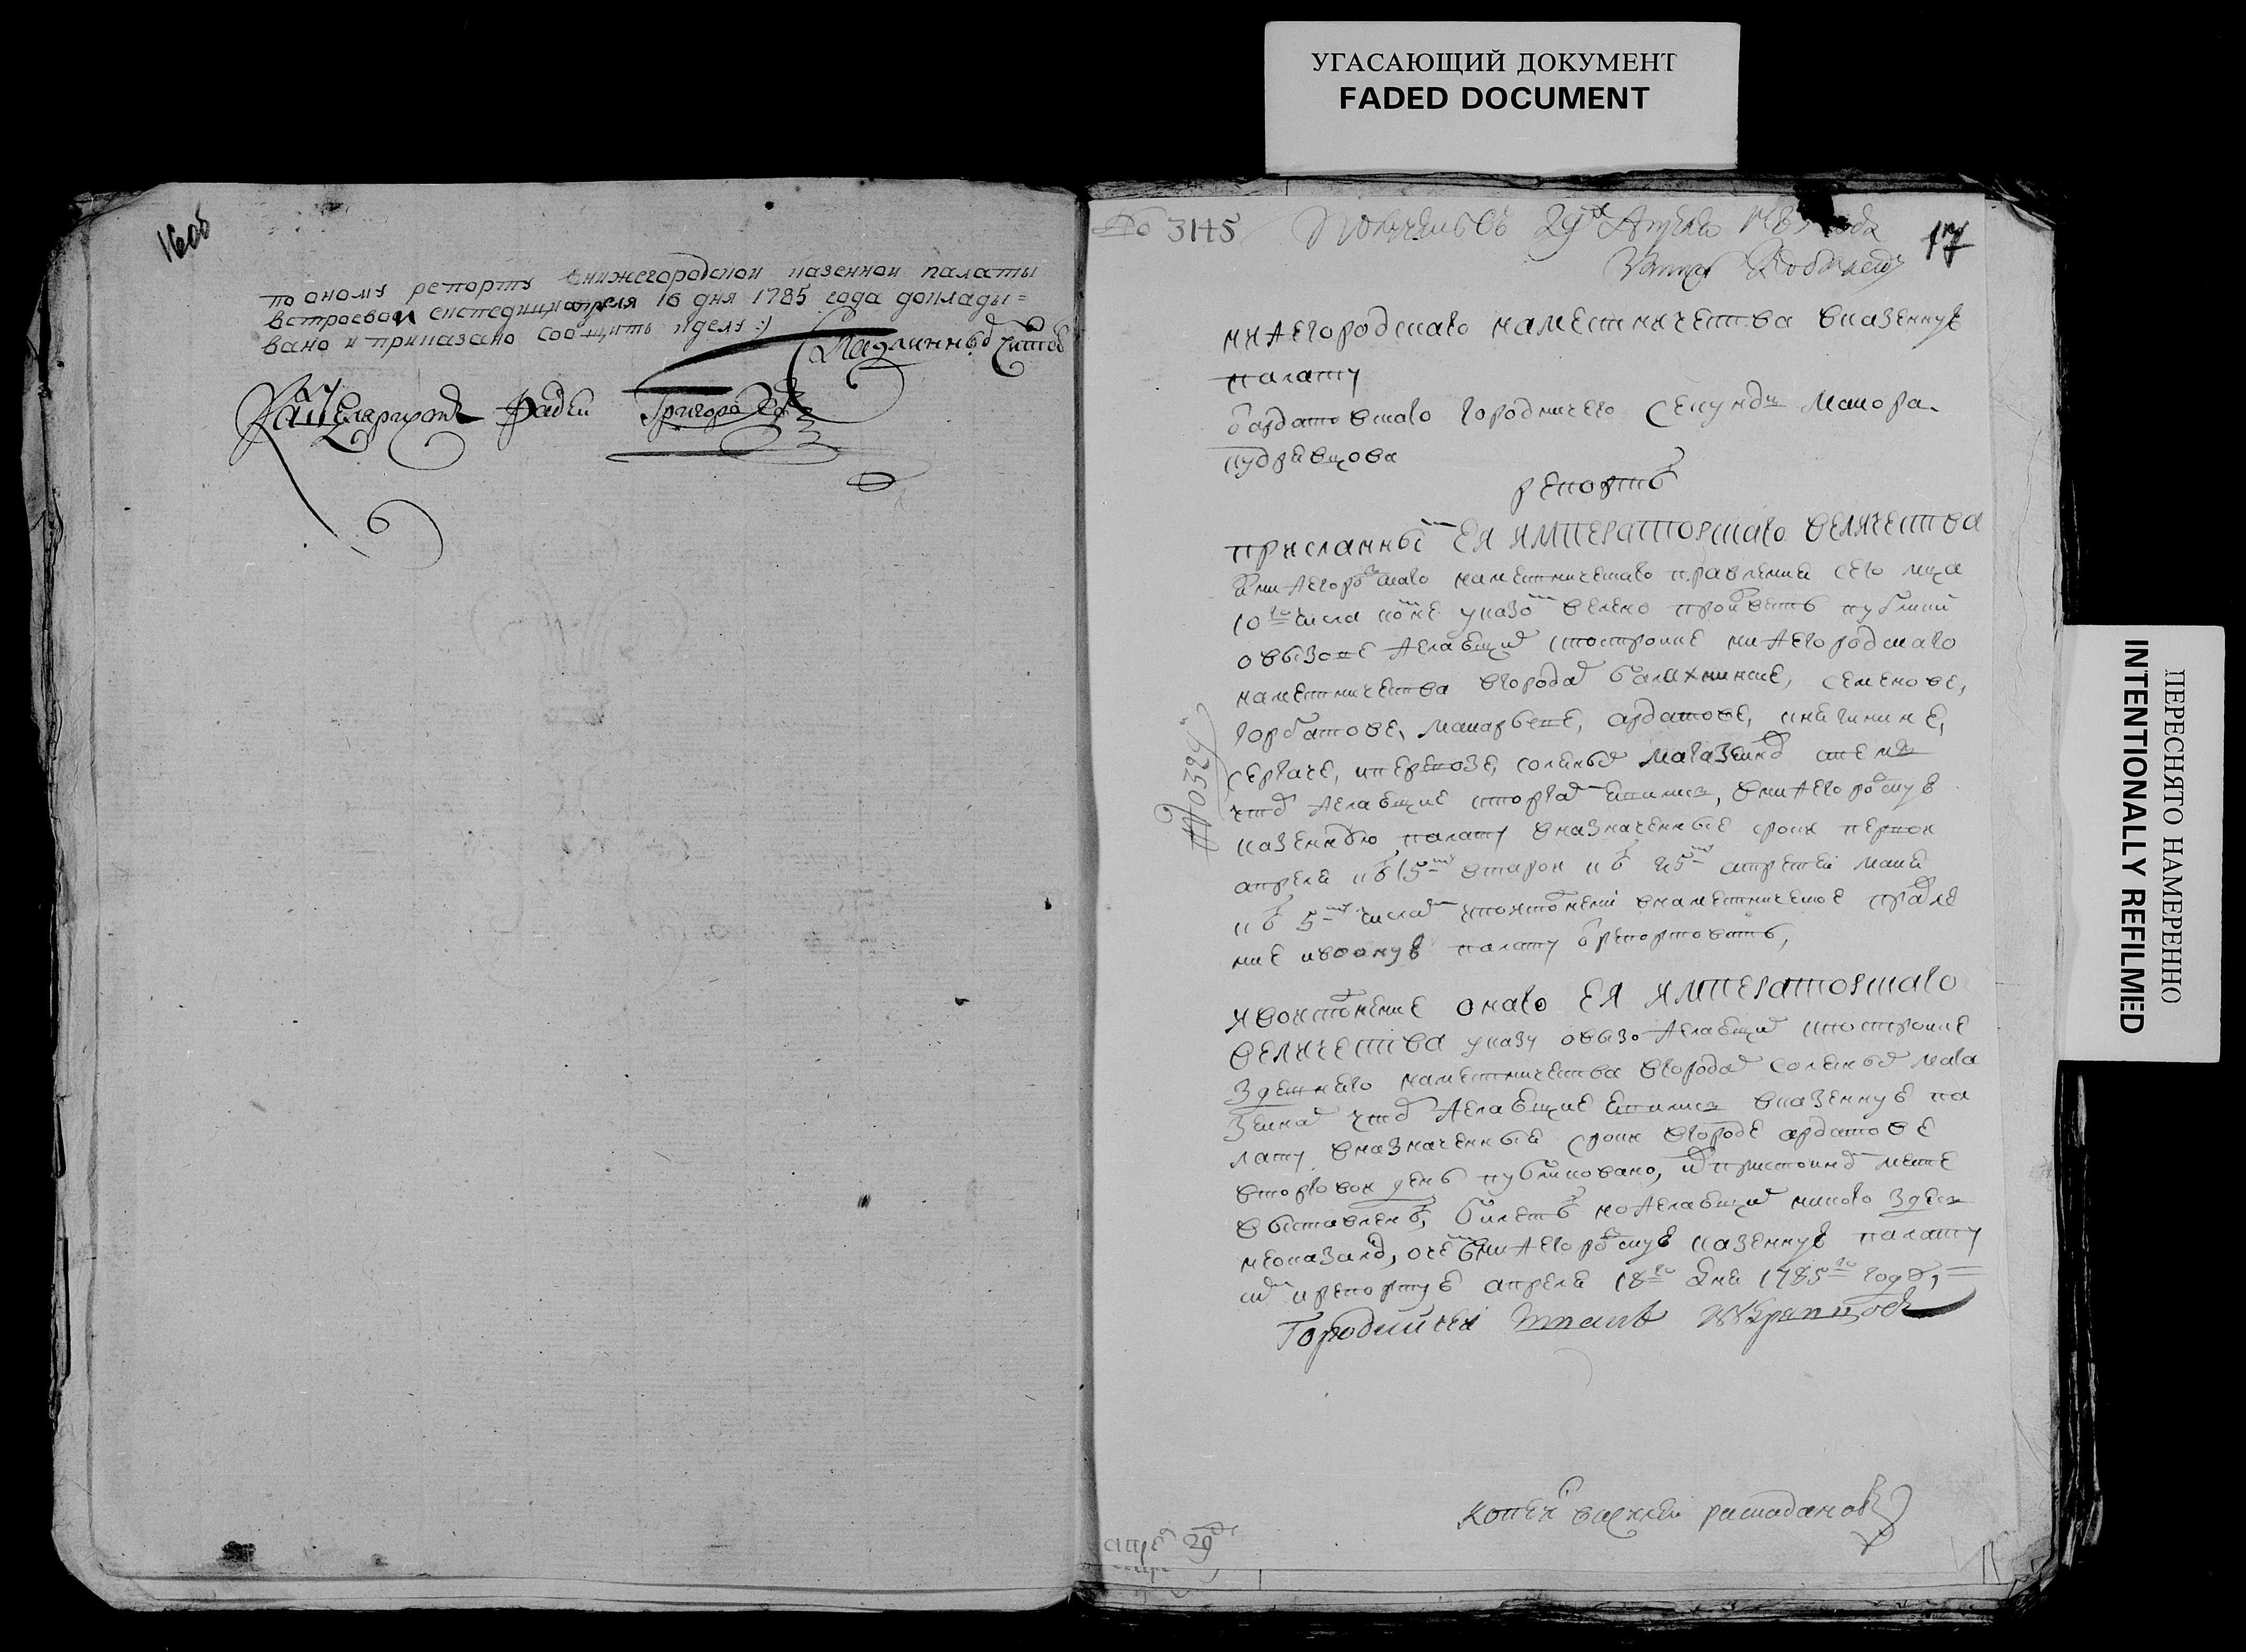 УГАСАЮЩИЙ ДОКУМЕНТ
FADED DOCUMENT
16об
по оному репорту внижегородской казенной палаты
встроевой експедиции апреля 16 дня 1785 года доклады=
вано и приказано сообщить кделу :/
Канцеляристъ Фадей Григорьевъ
№ 3145
17
нижегородскаго наместничества вказенную
палату
ардатовскаго городничего секундъ маиора
кудрявцова
репортъ
присланны ЕЯ ИМПЕРАТОРСКАГО ВЕЛИЧЕСТВА
из нижегородскаго наместническаго правления сего мца
10го числа комне указо велено произвесть публики
овызове желающих кпостроике нижегородскаго
наместничества вгородах балахнинске, семенове,
горбатове, макарьеве, ардатове, княгинине,
сергаче, и перевозе, соленых магазейнов стем
чтоб желающие кторгам явились, внижегородскую
казенную палату вназначенные сроки первой
апреля къ 15му второй къ 25му атретей маия
къ 5му числам иопоисполнени внаместническое правле
ние ивоную палату отрепортовать,
ивоисполнение онаго ЕЯ ИМПЕРАТОРСКАГО
ВЕЛИЧЕСТВА указу овызо желающих кпостроике
здешнего наместничества вгородах соленых мага
зеинов чтоб желающие явились вказенную па
лату вназначенныя сроки вгороде ардатове
вторговой день публиковано, и впристоином месте
выставленъ билетъ ножелающих никого здесь
неоказалось, очем внижегородскую казенную палату
сим ирепортую апреля 18го дня 1785го году,
Городничей
апре 29
ПЕРЕСНЯТО НАМЕРЕННО
INTENTIONALLY REFILMED